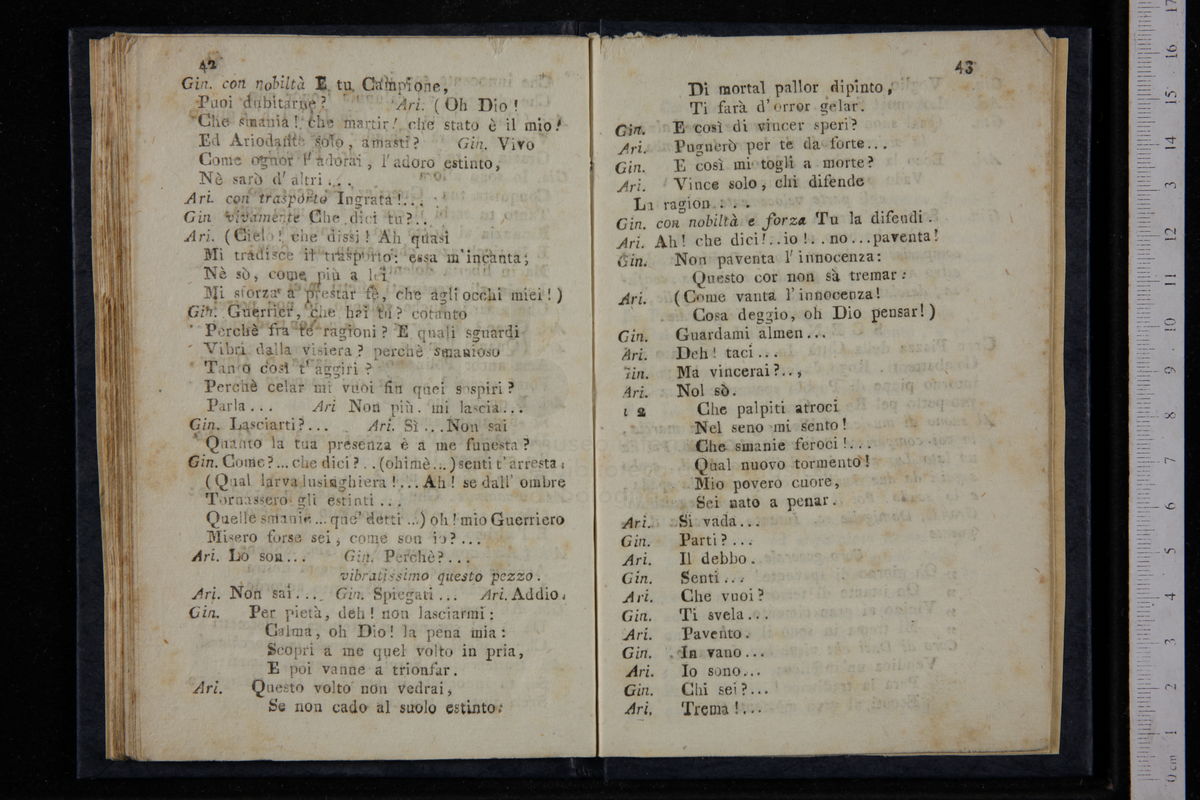 42
Gin. con nobiltà E tu Campione,
Puoi dubitarne? Ari. (Oh Dio!
Che smania! che martir! che stato è il mio!
Ed Ariodante solo, amasti? Gin. Vivo
Come ognor l'adorai, l'adoro estinto,
Nè sarò d'altri...
Ari. con trasporto Ingrata!...
Gin vivamente Che dici tu?..
Ari. (Cielo! che dissi! Ah quasi
Mi tradisce il trasporto: essa m'incanta;
Nè sò, come più a lei
Mi sforza a prestar fè, che agli occhi miei!)
Gin. Guerrier, che hai tu? cotanto
Perchè fra te ragioni? E quali sguardi
Vibri dalla visiera? perchè smanioso
Tanto così t'aggiri?
Perchè celar mi vuoi fin quei sospiri?
Parla... Ari Non più. mi lascia...
Gin. Lasciarti?... Ari. Sì...Non sai
Quanto la tua presenza è a me funesta?
Gin. Come?...che dici?..(ohimè...)senti t'arresta:
(Qual larva lusinghiera!...Ah! se dall' ombre
Tornassero gli estinti...
Quelle smanie...que' detti...) oh! mio Guerriero
Misero forse sei, come son io?...
Ari. Lo son... Gin. Perchè?...
vibratissimo questo pezzo.
Ari. Non sai... Gin. Spiegati... Ari. Addio.
Gin. Per pietà, deh! non lasciarmi:
Calma, oh Dio! la pena mia:
Scopri a me quel volto in pria,
E poi vanne a trionfar.
Ari. Questo volto non vedrai,
Se non cado al suolo estinto:
43
Di mortal pallor dipinto,
Ti farà d'orror gelar.
Gin. E così di vincer speri?
Ari. Pugnerò per te da forte...
Gin. E così mi togli a morte?
Ari. Vince solo, chi difende
La ragion....
Gin. con nobiltà e forza Tu la difendi.
Ari. Ah! che dici!..io!..no...paventa!
Gin. Non paventa l'innocenza:
Questo cor non sà tremar:
Ari. (Come vanta l'innocenza!
Cosa deggio, oh Dio pensar!)
Gin. Guardami almen...
Ari. Deh! taci...
Gin. Ma vincerai?..,
Ari. Nol sò.
a 2 Che palpiti atroci
Nel seno mi sento!
Che smanie feroci!...
Qual nuovo tormento!
Mio povero cuore,
Sei nato a penar.
Ari. Si vada...
Gin. Parti?...
Ari. Il debbo.
Gin. Senti...
Ari. Che vuoi?
Gin. Ti svela...
Ari. Pavento.
Gin. In vano...
Ari. Io sono...
Gin. Chi sei?...
Ari. Trema!...
0 cm 1 2 3 4 5 6 7 8 9 10 11 12 13 14 15 16 17